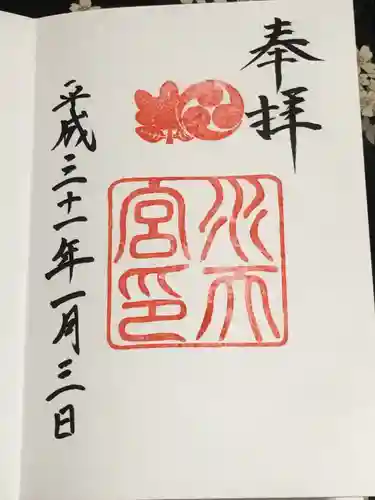 奉拝
水天宮印
平成三十一年一月三日